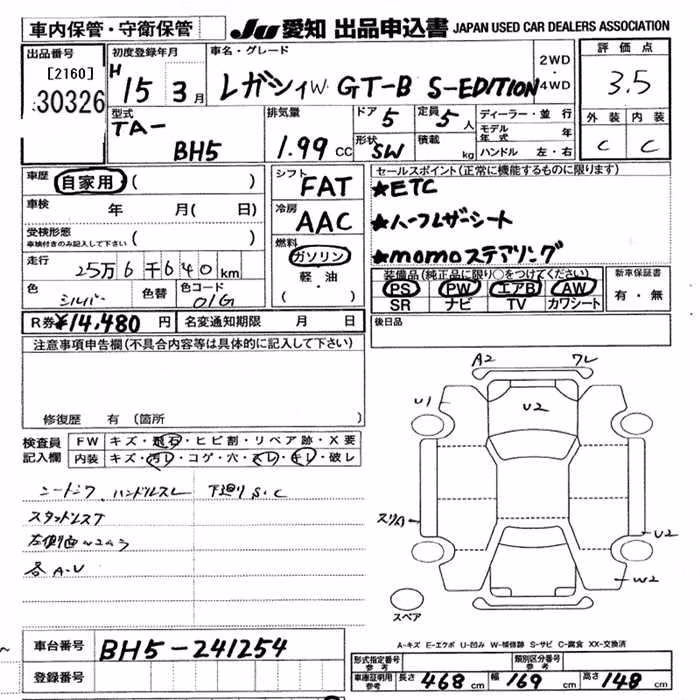 車内保管・守衛保管
JU 愛知 出品申込書 JAPAN USED CAR DEALERS ASSOCIATION
出品番号
[2160]
30326
初度登録年月
H 15 3月
車名・グレード
レガシィW GT-B S-EDITION
2WD
4WD
評価点
3.5
外装 内装
C C
型式
TA-
BH5
排気量
1.99 CC
ドア 5
形状 SW
定員 5人
積載 kg
ディーラー・並行
モデル年式 年
ハンドル 左・右
車歴 自家用 ( )
車検 年 月( 日)
受検形態
車検付きのみ記入して下さい ( )
走行 25万6千640km
色 シルバー 色替 色コード 01G
R券 ¥14,480円 名変通知期限 月 日
シフト
FAT
冷房
AAC
燃料
ガソリン
軽・油
( )
セールスポイント(正常に機能するものに限ります)
★ETC
★ハーフレザーシート
★momoステアリング
装備品(純正品に限り○をつけてください)
PS PW エアB AW
SR ナビ TV カワシート
新車保証書
有・無
後日品
注意事項申告欄(不具合内容等は具体的に記入して下さい)
修復歴 有(箇所 )
検査員記入欄
FW キズ・飛石・ヒビ割・リペア跡・X要
内装 キズ・汚レ・コゲ・穴・スレ・キレ・破レ
ハンドルスレ 下廻りS.C
スタッドレス
各A・U
A2 ワレ
U1 U2
スリA
U2
W2
スペア
A-キズ E-エクボ U-凹み W-補修跡 S-サビ C-腐食 XX-交換済
車台番号 BH5-241254
登録番号
形式指定番号参考 類別区分番号参考
車庫証明用参考 長さ 468cm 幅 169cm 高さ 148cm